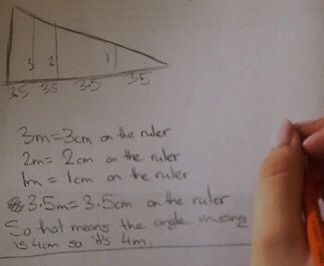 3 2 1
3.5 3.5 3.5 3.5
3m=3cm on the ruler
2m=2cm on the ruler
1m=1cm on the ruler
3.5m=3.5cm on the ruler
So that means the angle missing
is 4cm so it's 4m.